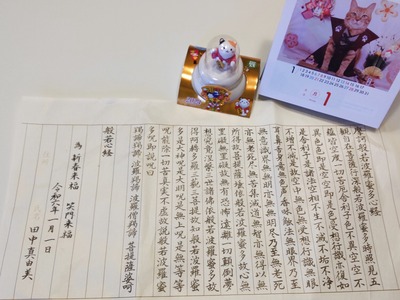 摩訶般若波羅蜜多心経
観自在菩薩行深般若波羅蜜多時照見五
蘊皆空度一切苦厄舎利子色不異空空不
異色色即是空空即是色受想行識亦復如
是舎利子是諸法空相不生不滅不垢不浄
不増不減是故空中無色無受想行識無眼
耳鼻舌身意無色声香味触法無眼界乃至
無意識界無無明亦無無明尽乃至無老死
亦無老死尽無苦集滅道無智亦無得以無
所得故菩提薩埵依般若波羅蜜多故心無
罣礙無罣礙故無有恐怖遠離一切顛倒夢
想究竟涅槃三世諸佛依般若波羅蜜多故
得阿耨多羅三藐三菩提故知般若波羅蜜
多是大神呪是大明呪是無上呪是無等等
呪能除一切苦真実不虚故説般若波羅蜜
多呪即説呪曰
羯諦羯諦波羅羯諦波羅僧羯諦菩提薩婆訶
般若心経
為 新春来福 笑門来福
令和六年一月一日
田中真由美
1
月 1